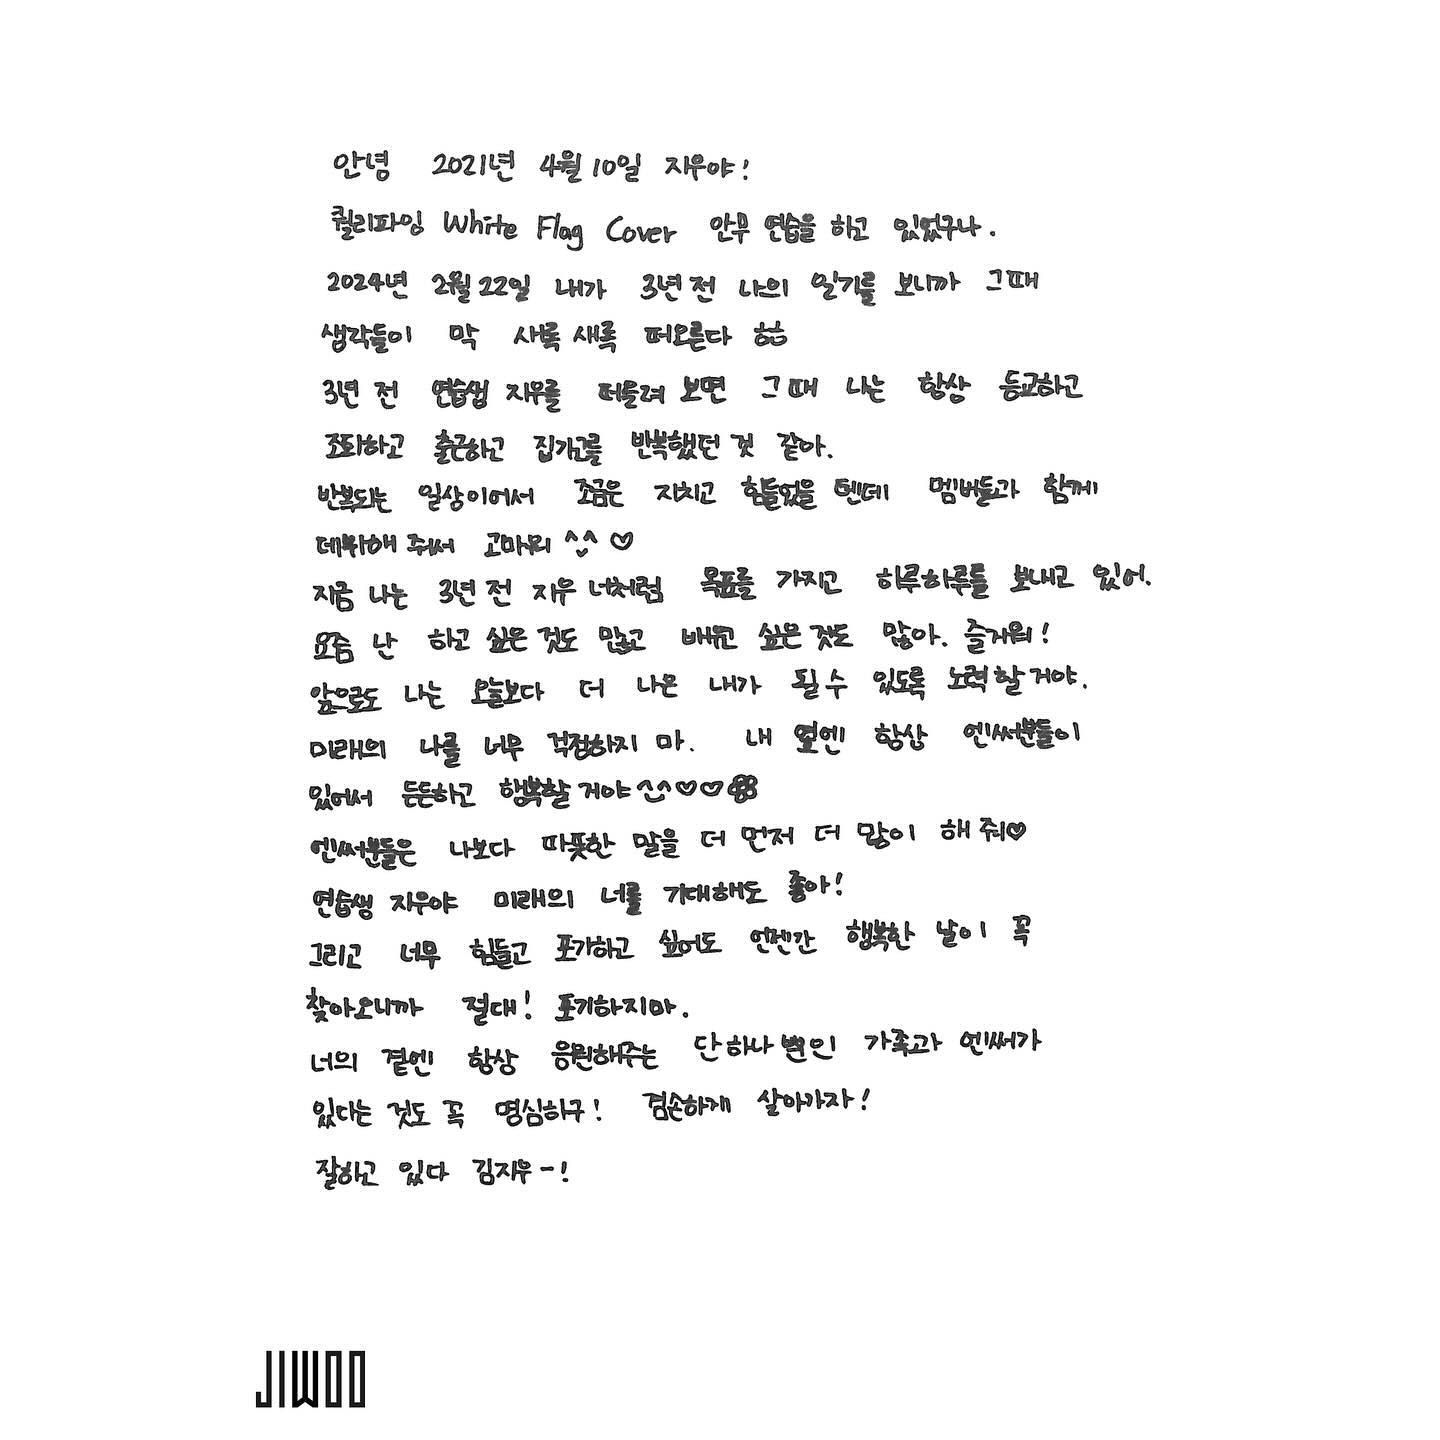 안녕 2021년 4월 10일 지우야!
퀄리파잉 White Flag Cover 안무 연습을 하고 있었구나.
2024년 2월 22일 내가 3년 전 나의 일기를 보니까 그때
생각들이 막 새록새록 떠오른다 ㅎㅎ
3년 전 연습생 지우를 떠올려 보면 그 때 나는 항상 등교하고
조퇴하고 출근하고 집가고를 반복했던 것 같아.
반복되는 일상이어서 조금은 지치고 힘들었을 텐데 멤버들과 함께
데뷔해 줘서 고마워 ^^ ♡
지금 나는 3년 전 지우 너처럼 목표를 가지고 하루하루를 보내고 있어.
요즘 난 하고 싶은 것도 많고 배우고 싶은 것도 많아. 즐거워!
앞으로도 나는 오늘보다 더 나은 내가 될 수 있도록 노력할 거야.
미래의 나를 너무 걱정하지 마. 내 옆엔 항상 엔써분들이
있어서 든든하고 행복할 거야 ^^♡♡
엔써분들은 나보다 따뜻한 말을 더 먼저 더 많이 해 줘♥
연습생 지우야 미래의 너를 기대해도 좋아!
그리고 너무 힘들고 포기하고 싶어도 언젠간 행복한 날이 꼭
찾아오니까 절대! 포기하지마.
너의 곁엔 항상 응원해주는 단 하나 뿐인 가족과 엔써가
있다는 것도 꼭 명심하구! 겸손하게 살아가자!
잘하고 있다 김지우-!
JIWOO